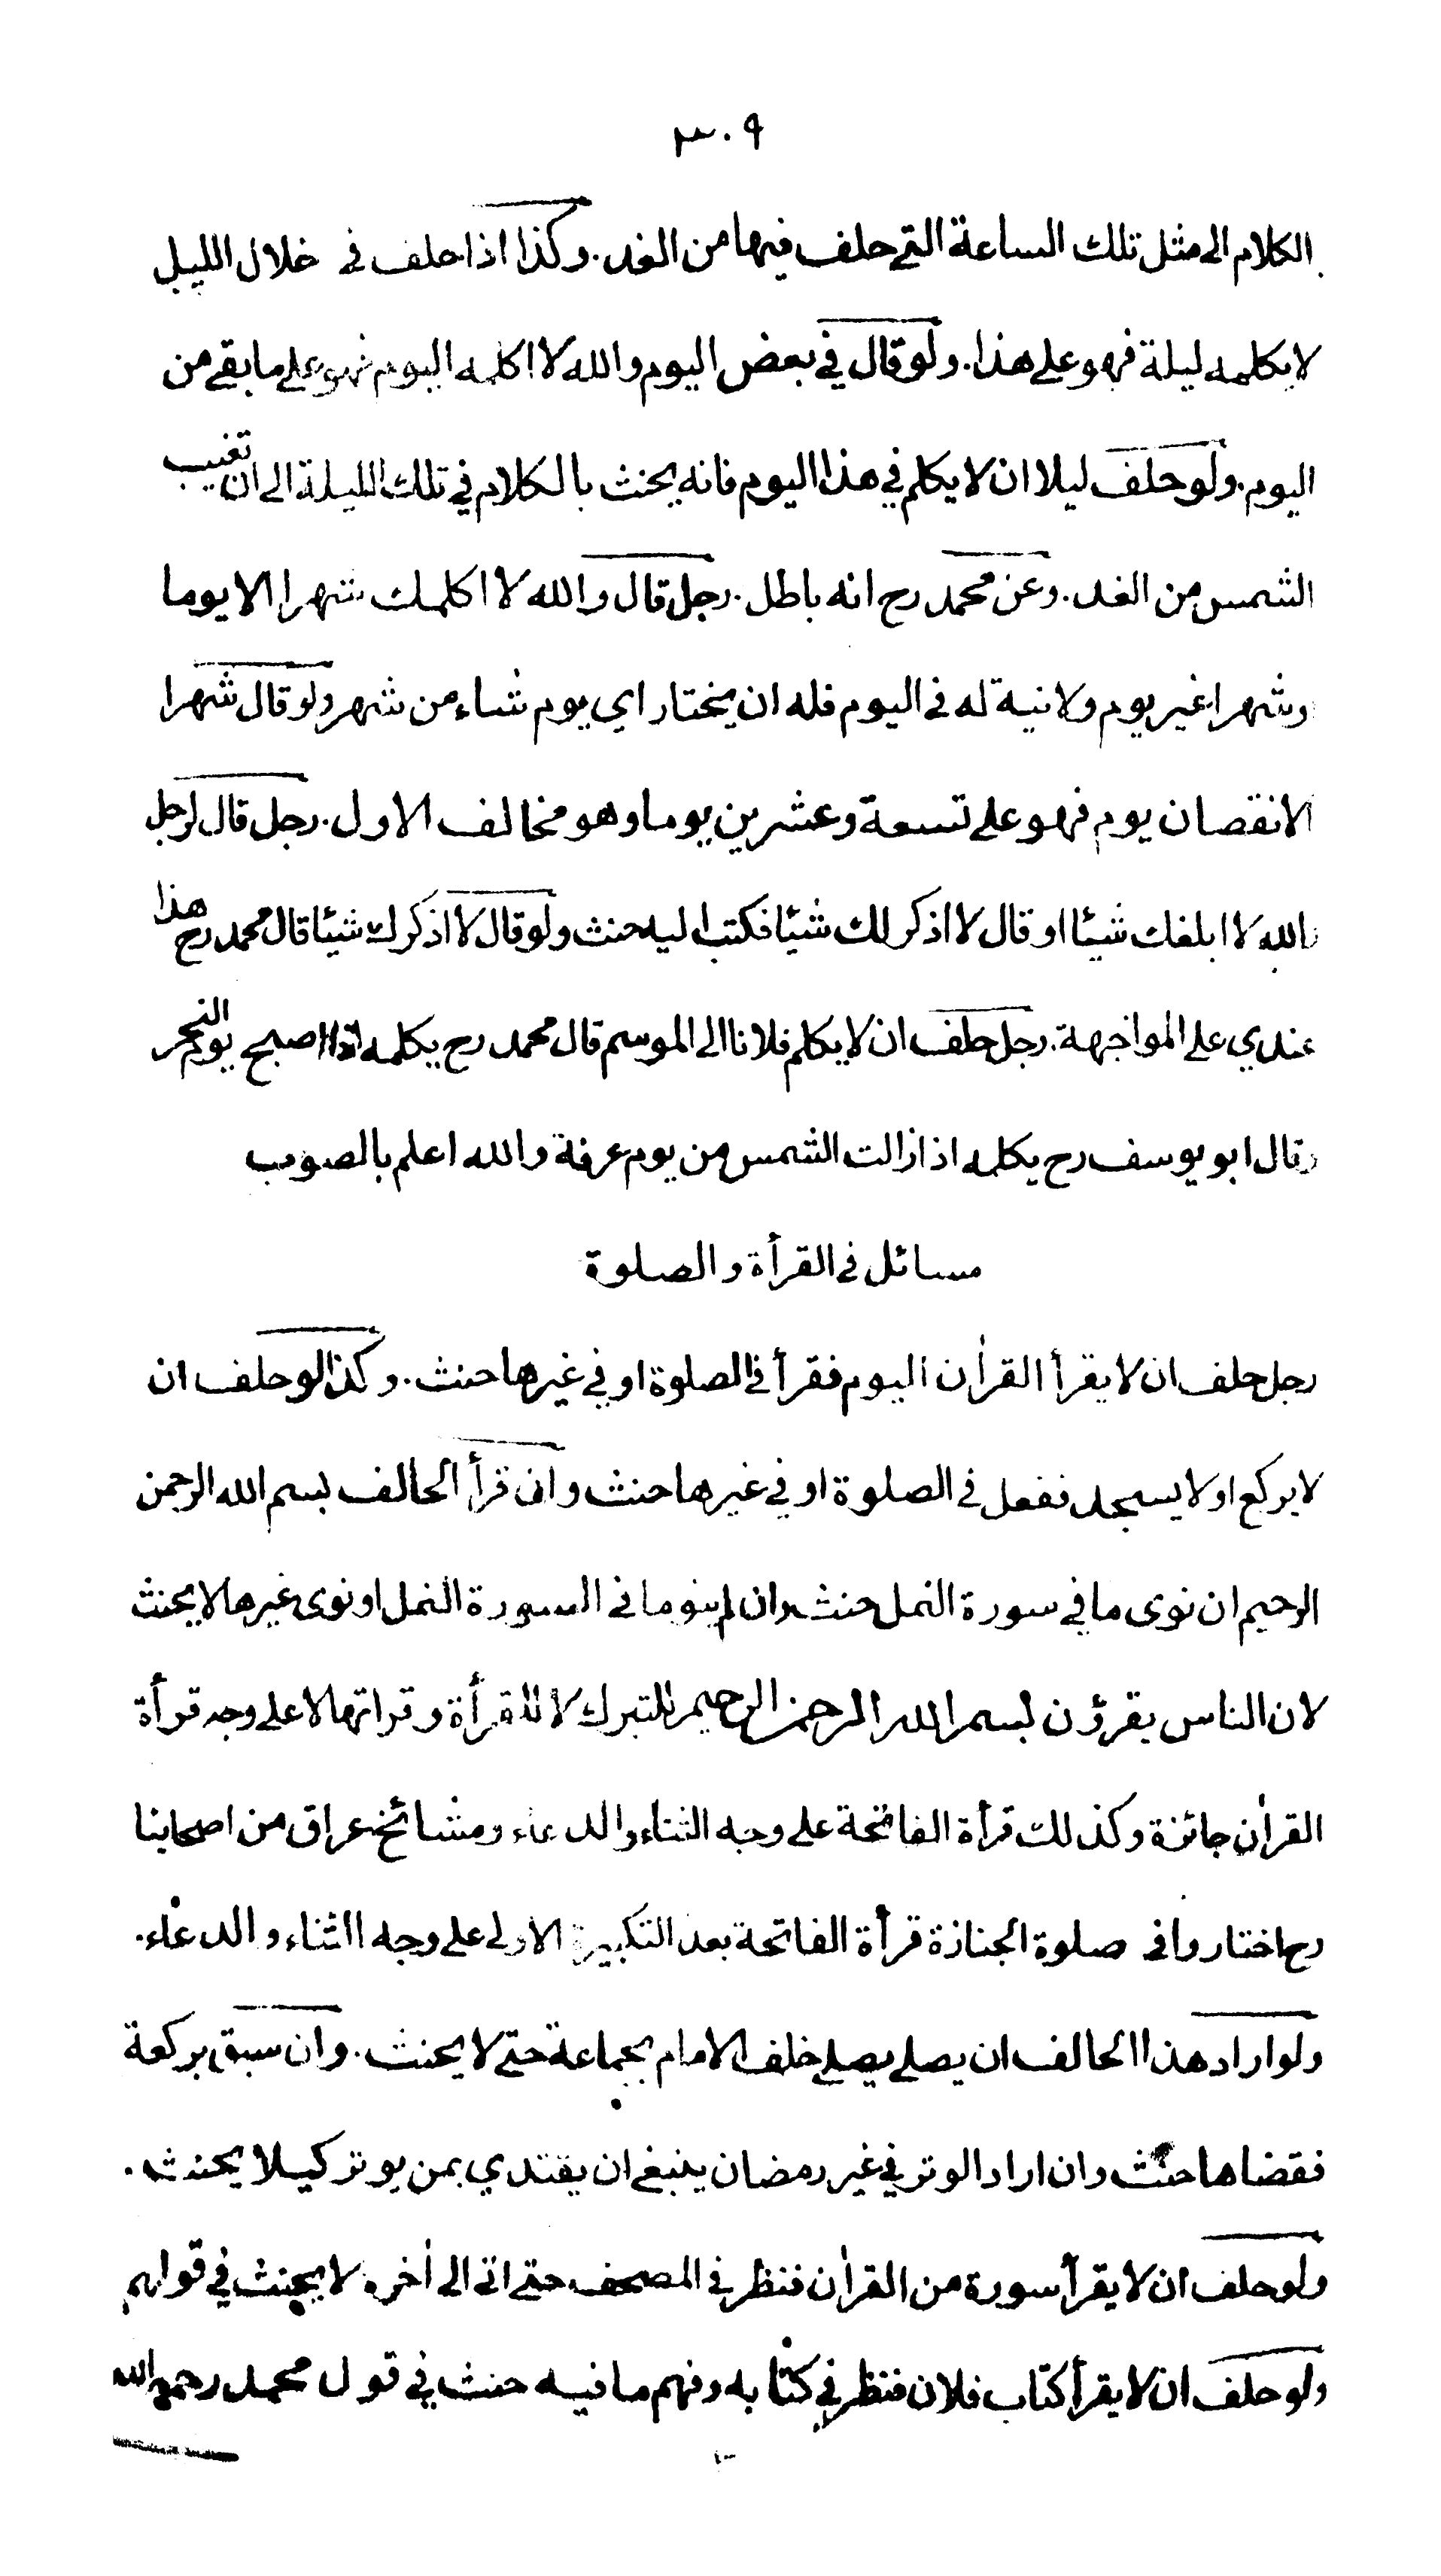 ٣٠٩
الكلام الى مثل تلك الساعة التي حلف فيها من الغد. وكذا اذا حلف في خلال الليل
لا يكلمه ليلة فهو على هذا. ولو قال في بعض اليوم والله لا اكلمه اليوم فهو على ما بقي من
اليوم. ولو حلف ليلا ان لا يكلم في هذا اليوم فانه يحنث بالكلام في تلك الليلة الى ان تغيب
الشمس من الغد. وعن محمد رح انه باطل. رجل قال والله لا اكلمك شهرا الا يوما
وشهرا غير يوم ولا نية له في اليوم فله ان يختار اي يوم شاء من شهر ولو قال شهرا
الا نقصان يوم فهو على تسعة وعشرين يوما وهو مخالف الاول. رجل قال لرجل
والله لا ابلغك شيئا او قال لا اذكر لك شيئا فكتب اليه حنث ولو قال لا اذكرك شيئا قال محمد رح هذا
عندي على المواجهة. رجل حلف ان لا يكلم فلانا الى الموسم قال محمد رح يكلمه اذا اصبح يوم النحر
وقال ابو يوسف رح يكلمه اذا زالت الشمس من يوم عرفة والله اعلم بالصوب
مسائل في القرأة والصلوة
رجل حلف ان لا يقرأ القرأن اليوم فقرأ في الصلوة او في غيرها حنث. وكذا لو حلف ان
لا يركع او لا يسجد ففعل في الصلوة او في غيرها حنث وان قرأ الحالف بسم الله الرحمن
الرحيم ان نوى ما في سورة النمل حنث وان لم ينو ما في السورة النمل او نوى غيرها لا يحنث
لان الناس يقرؤن بسم الله الرحمن الرحيم للتبرك لا للقرأة وقراتها لا على وجه قرأة
القرأن جائزة وكذلك قرأة الفاتحة على وجه الثناء والدعاء ومشائخ عراق من اصحابنا
رح اختاروا في صلوة الجنازة قرأة الفاتحة بعد التكبيرة الاولى على وجه الثناء والدعاء.
ولو اراد هذا الحالف ان يصلي يصلي خلف الامام بجماعة حتى لا يحنث. وان سبق بركعة
فقضاها حنث وان اراد الوتر في غير رمضان ينبغي ان يقتدي بمن يوتر كيلا يحنث.
ولو حلف ان لا يقرأ سورة من القرأن فنظر في المصحف حتى اتى الى أخره لا يحنث في قولهم
ولو حلف ان لا يقرأ كتاب فلان فنظر في كتابه وفهم ما فيه حنث في قول محمد رحمه الله